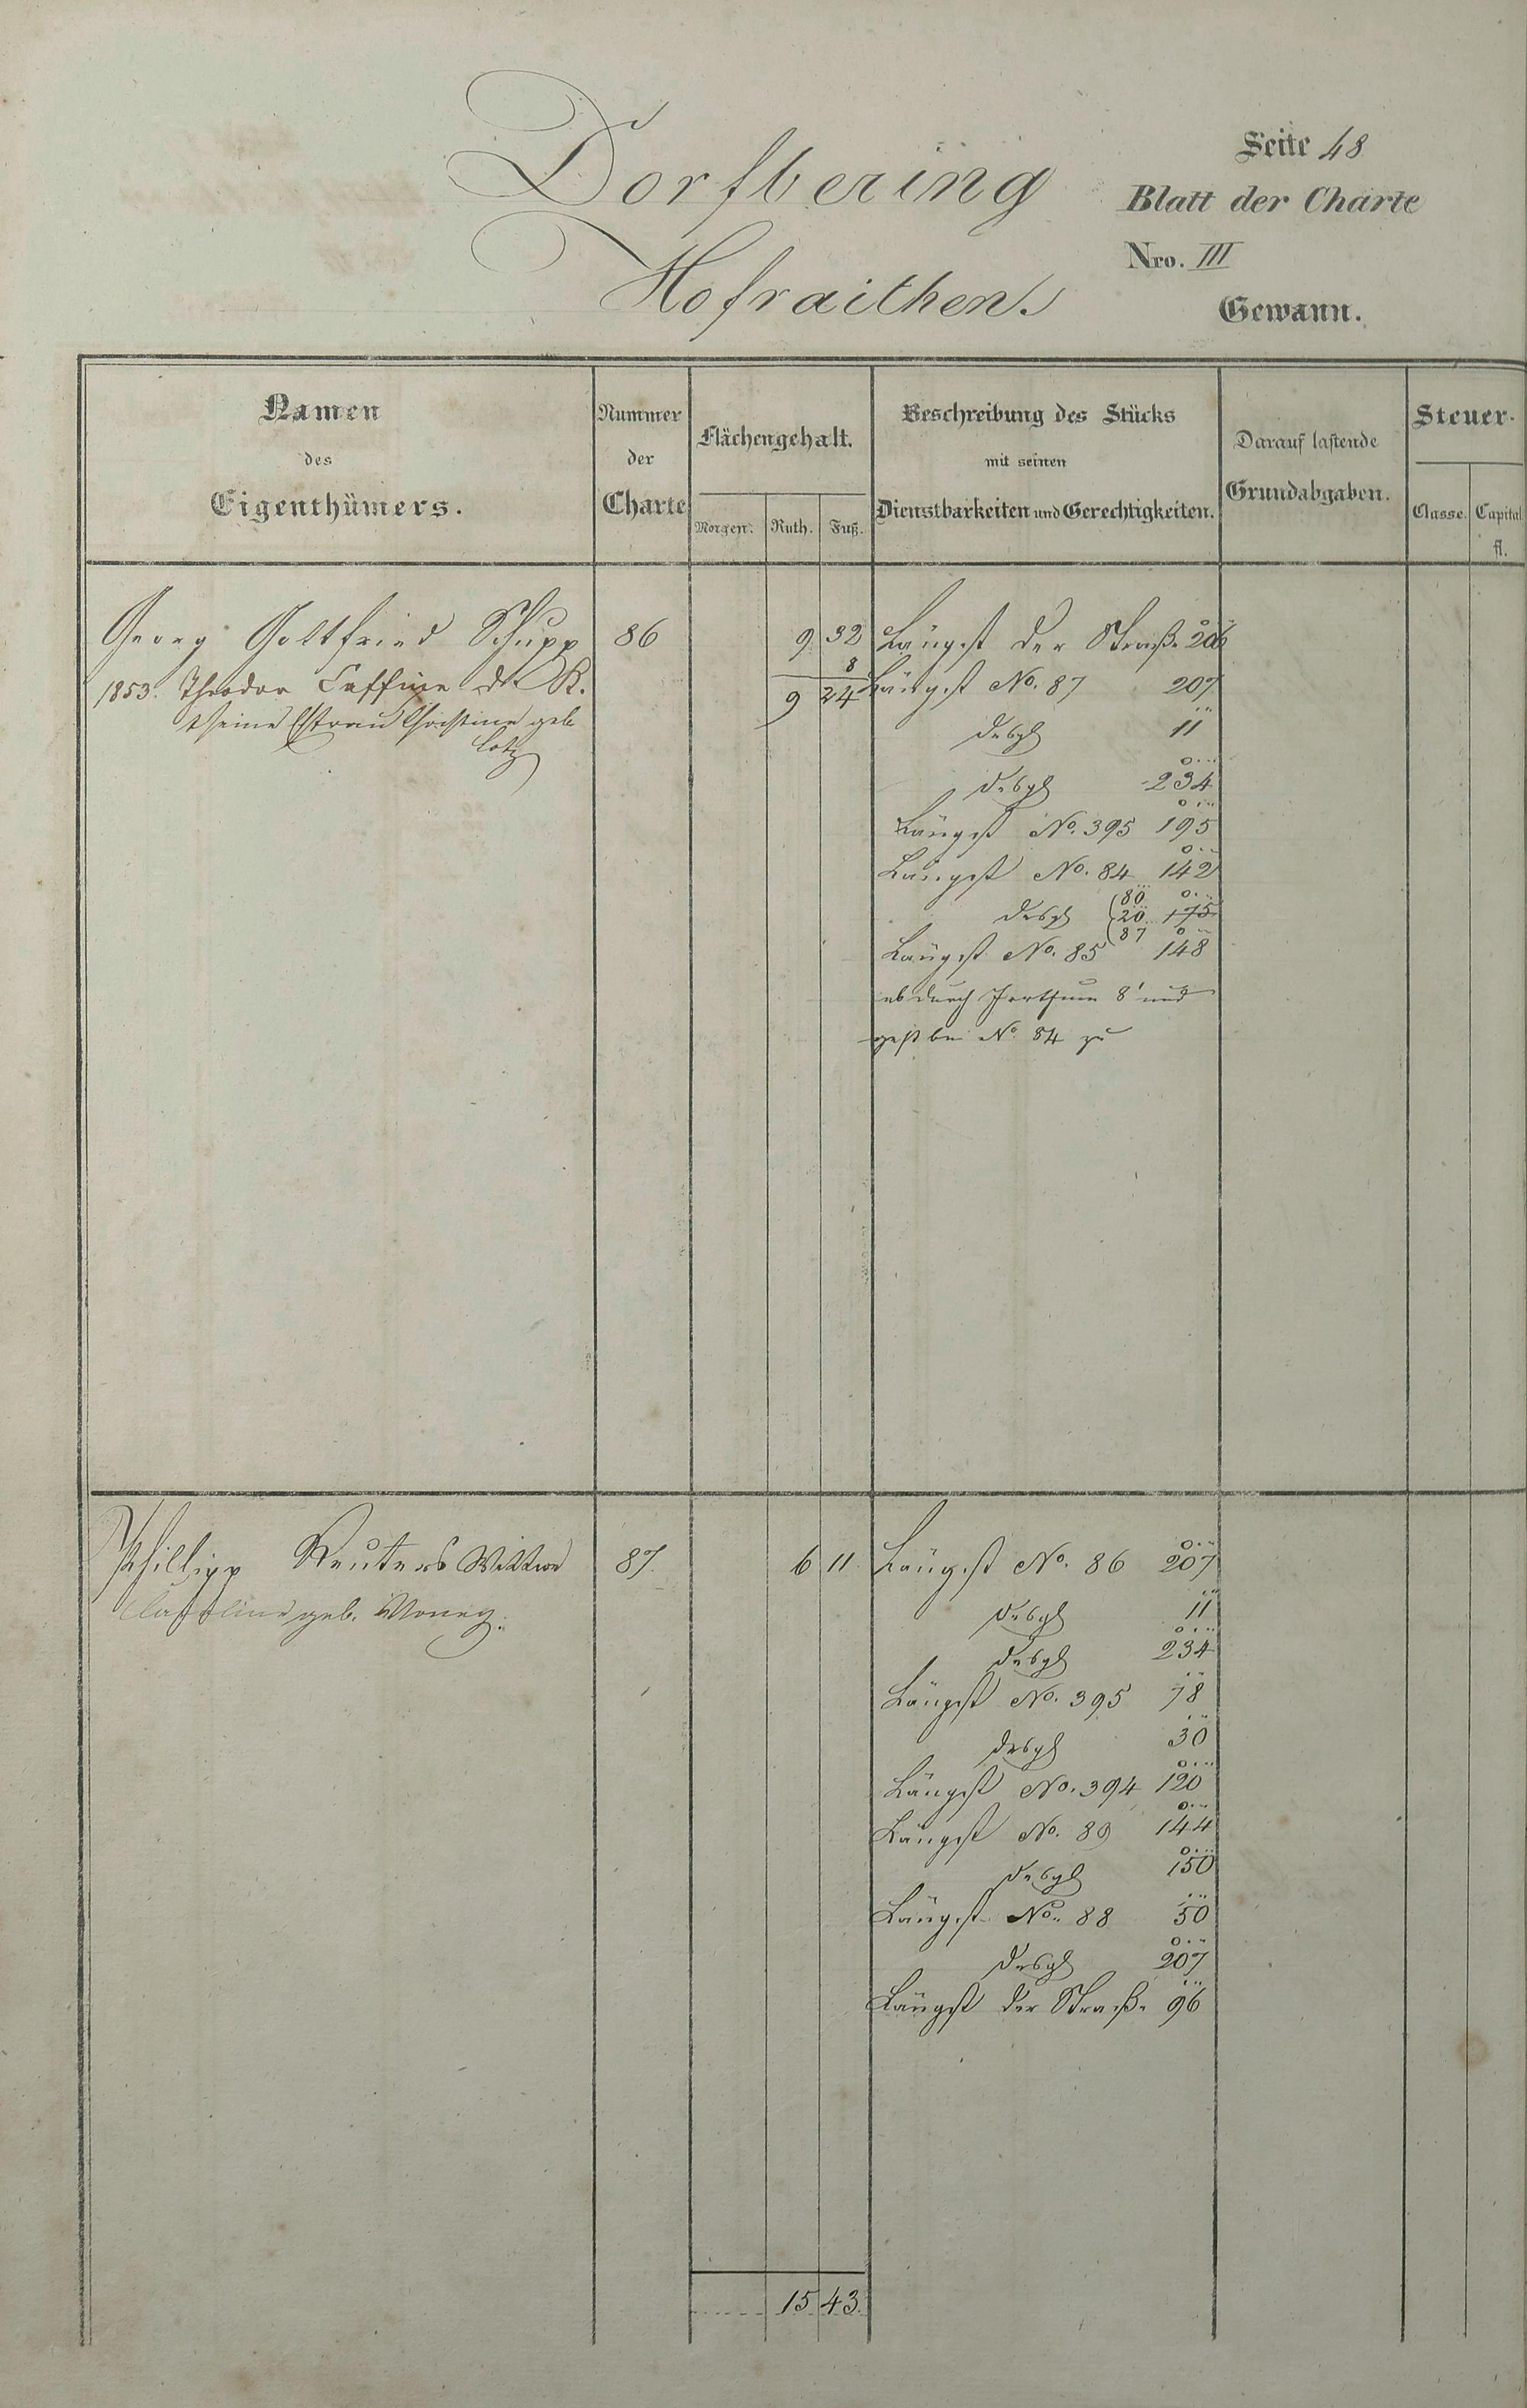 Dorfbering
Hofraithen.
Seite 48
Blatt der Charte
Nro. III
Gewann.
Namen
des
Eigenthümers.
Nummer
der
Charte
Flächengehalt.
Morgen. Ruth. Fuß.
Beschreibung des Stücks
mit seinen
Dienstbarkeiten und Gerechtigkeiten.
Darauf lastende
Grundabgaben.
Steuer-
Classe. Capital
fl.
Georg Gottfried Schupp 86 9 32 Längst der Straße 206
8
1853. Theodor 9 24 Längst No. 87 207
seine Ehefrau geb.
Lotz
desgl 11
desgl 234
Längst No. 395 195
Längst No. 84 142
desgl 80 20 87 175
Längst No. 85 148
ab durch Irrthum 8' und
geht bei No. 84 zu
Phillipp Reuters Wittwe 87. 6 11 Längst No. 86 207
geb.
desgl 11
desgl 234
Längst No. 395 78
desgl 30
Längst No. 394 120
Längst No. 89 144
desgl 150
Längst No. 88 50
desgl 207
Längst der Straße 96
15 43